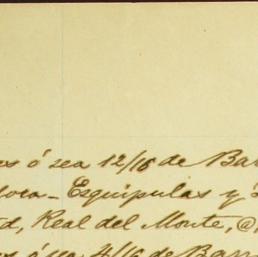 es ó sea 12/16 de Bar
dora - Esquipulas y S
d, Real del Monte, @
es ó sea 4/16 de Barr